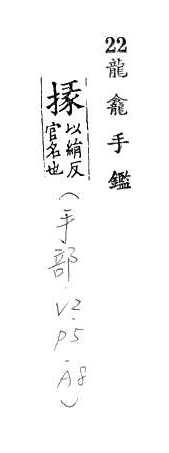 22龍龕手鑑
掾以絹反官名也
(手部 V2.P5.A8)